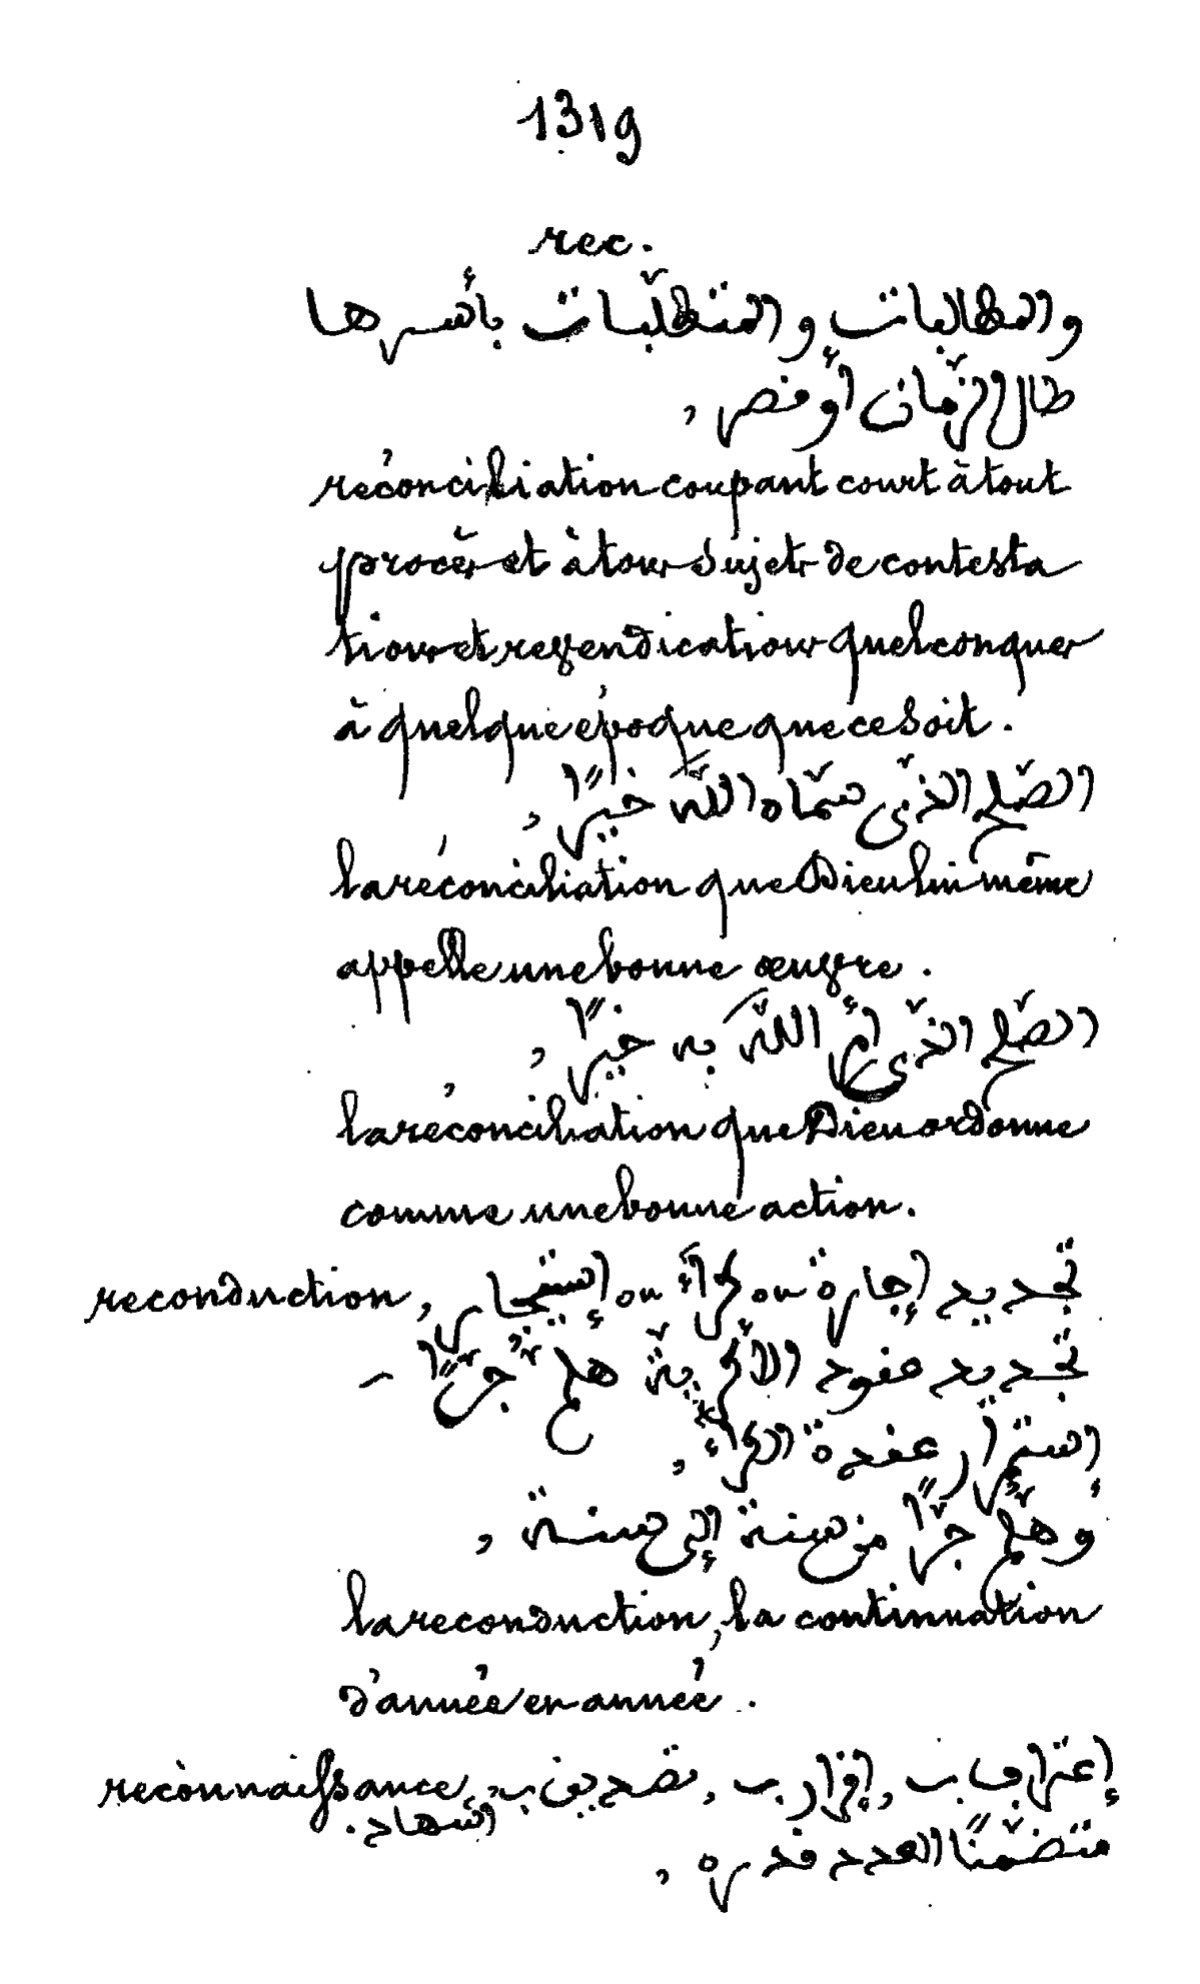 1319
rec.
والمطالبات والمتطلّبات بأسرها
طال الزّمان أو قصر ,
réconciliation coupant court à tout
procès et à tous sujets de contesta
tion et revendication quelconques
à quelque époque que ce soit.
الصّلح الذّى سمّاه اللّه خيرًا ,
la réconciliation que Dieu lui même
appelle une bonne œuvre.
الصّلح الذّى أمر اللّه به خيرًا ,
la réconciliation que Dieu ordonne
comme une bonne action.
reconduction, تجديد إجارة ou كراء ou إستيجار
تجديد عقود الأكرية هلمّ جرًّا -
إستمرار عقدة الكراء ,
وهلمّ جرًّا من سنة إلى سنة ,
la reconduction, la continuation
d'année en année.
reconnaissance, إعتراف ب , إقرار ب , تصديق ب ,
اشهاد.
متضمّنًا العدد قدره ,